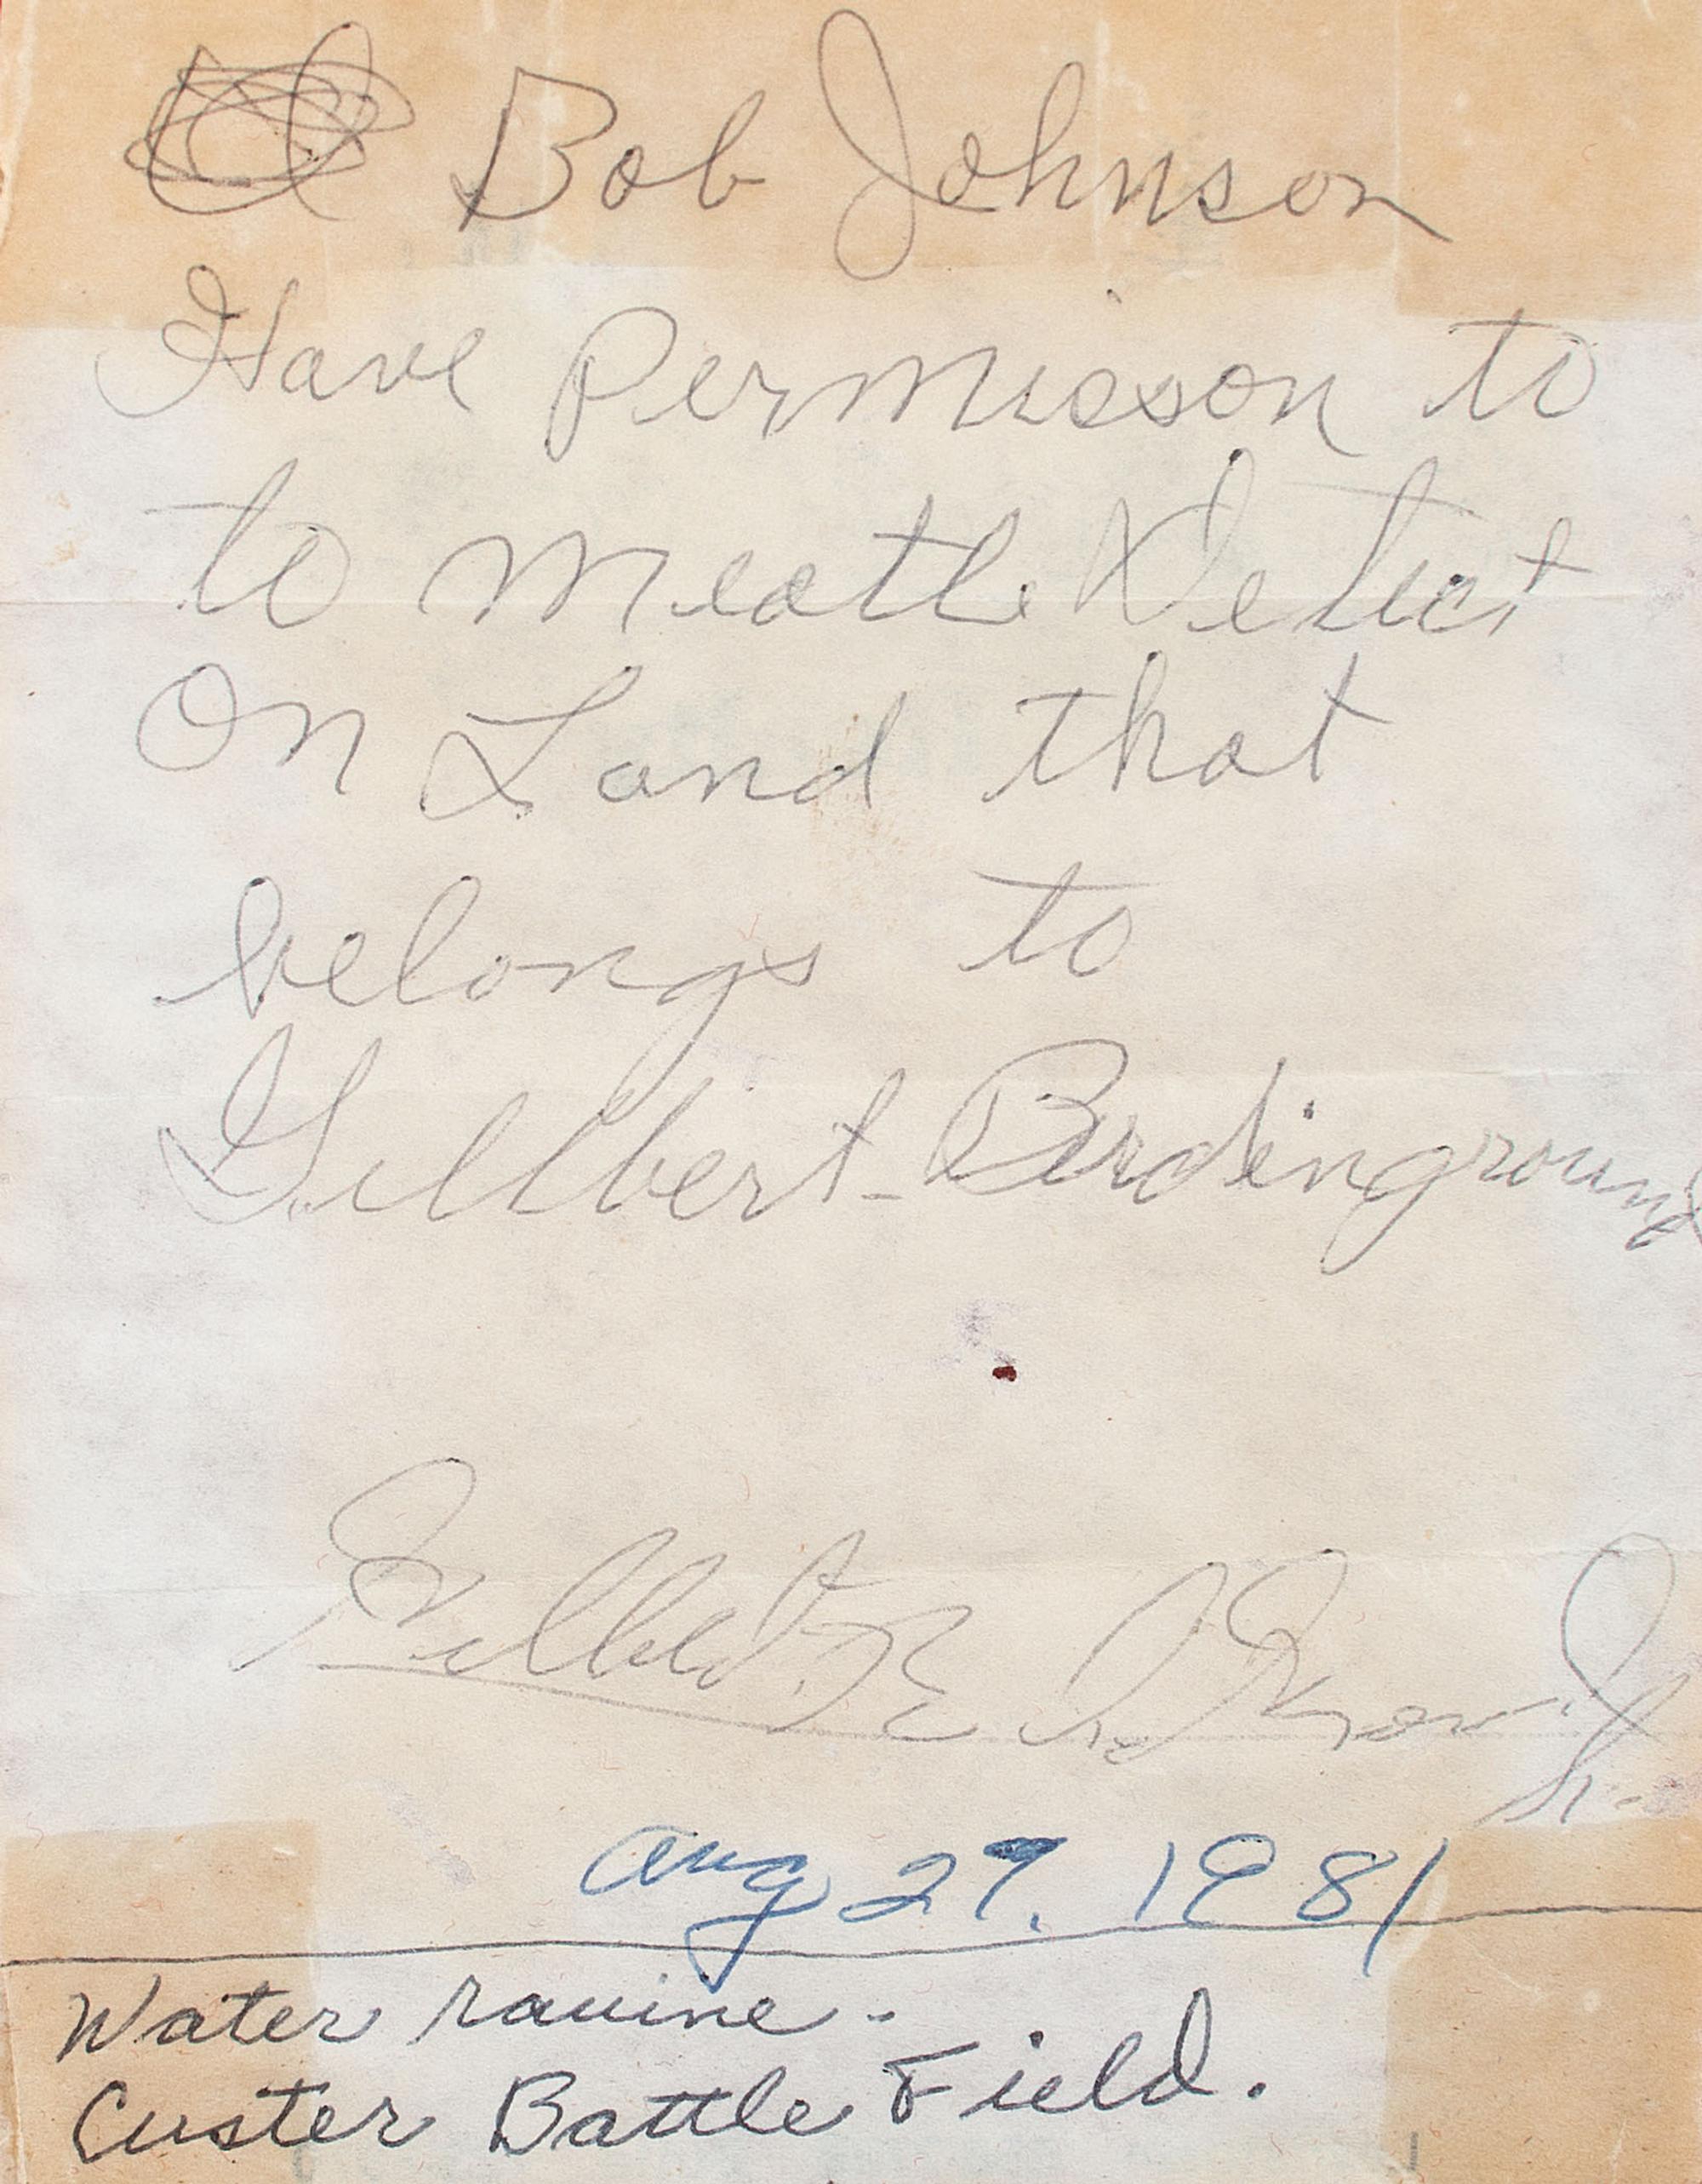 Bob Johnson
Have Permisson to
to meatle Detect
On Land that
belongs to
Gillbert-Birdinground
Gilbert
Jr.
Aug 29, 1981
Water ravine -
Custer Battle Field.